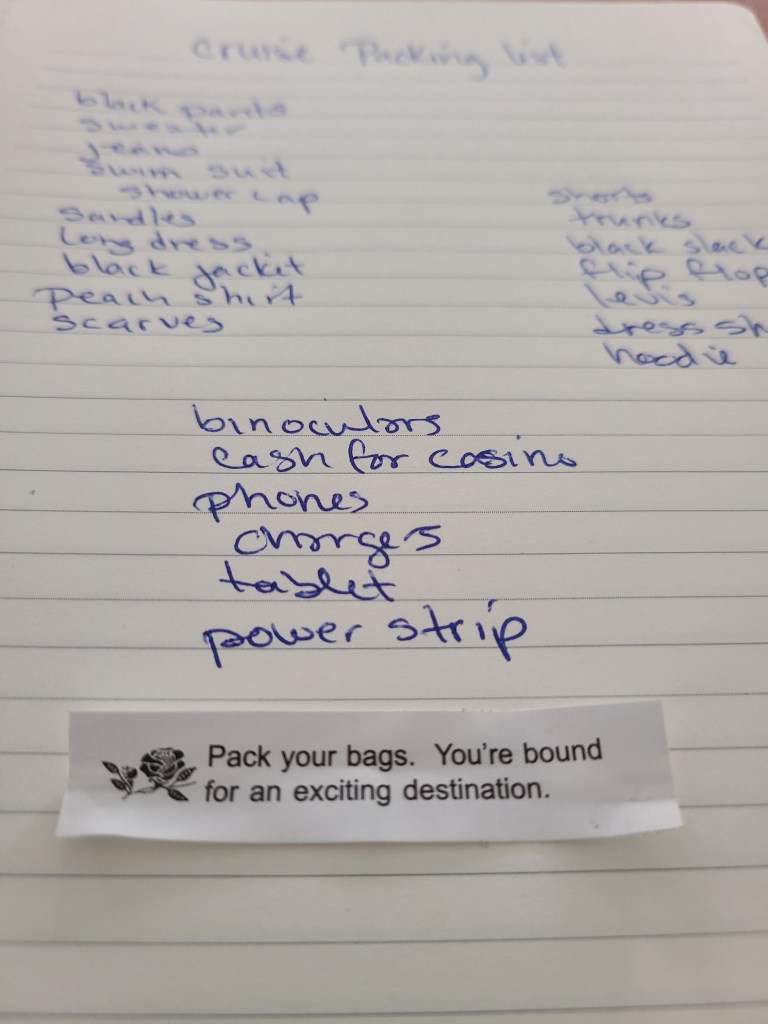 Cruise Packing list
black pants
sweater
jeans
swim suit
shower cap
sandles
long dress
black jacket
Peach shirt
scarves
shorts
trunks
black slack
flip flop
levis
dress sh
hoodie
binoculars
cash for casino
phones
charges
tablet
power strip
Pack your bags. You're bound
for an exciting destination.